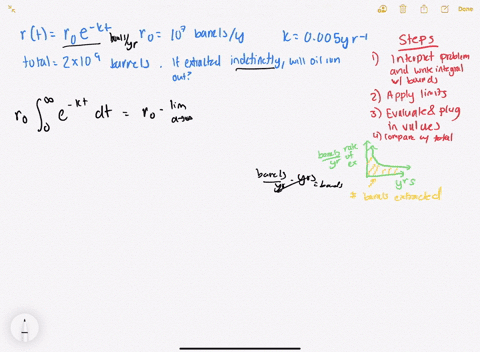 Done
r(t) = r₀e^{-kt} barrels/yr r₀ = 10⁷ barrels/y k = 0.005yr⁻¹
total = 2×10⁹ barrels. If extracted indefinitely, will oil run
out?
r₀ ∫₀^∞ e^{-kt} dt = r₀ · lim
a→∞
Steps
1) Interpret problem
and write integral
w/ bounds
2) Apply limits
3) Evaluate & plug
in values
4) compare w/ total
barrels/yr rate of ex
yrs
barrels/yr · yrs = barrels
# barrels extracted